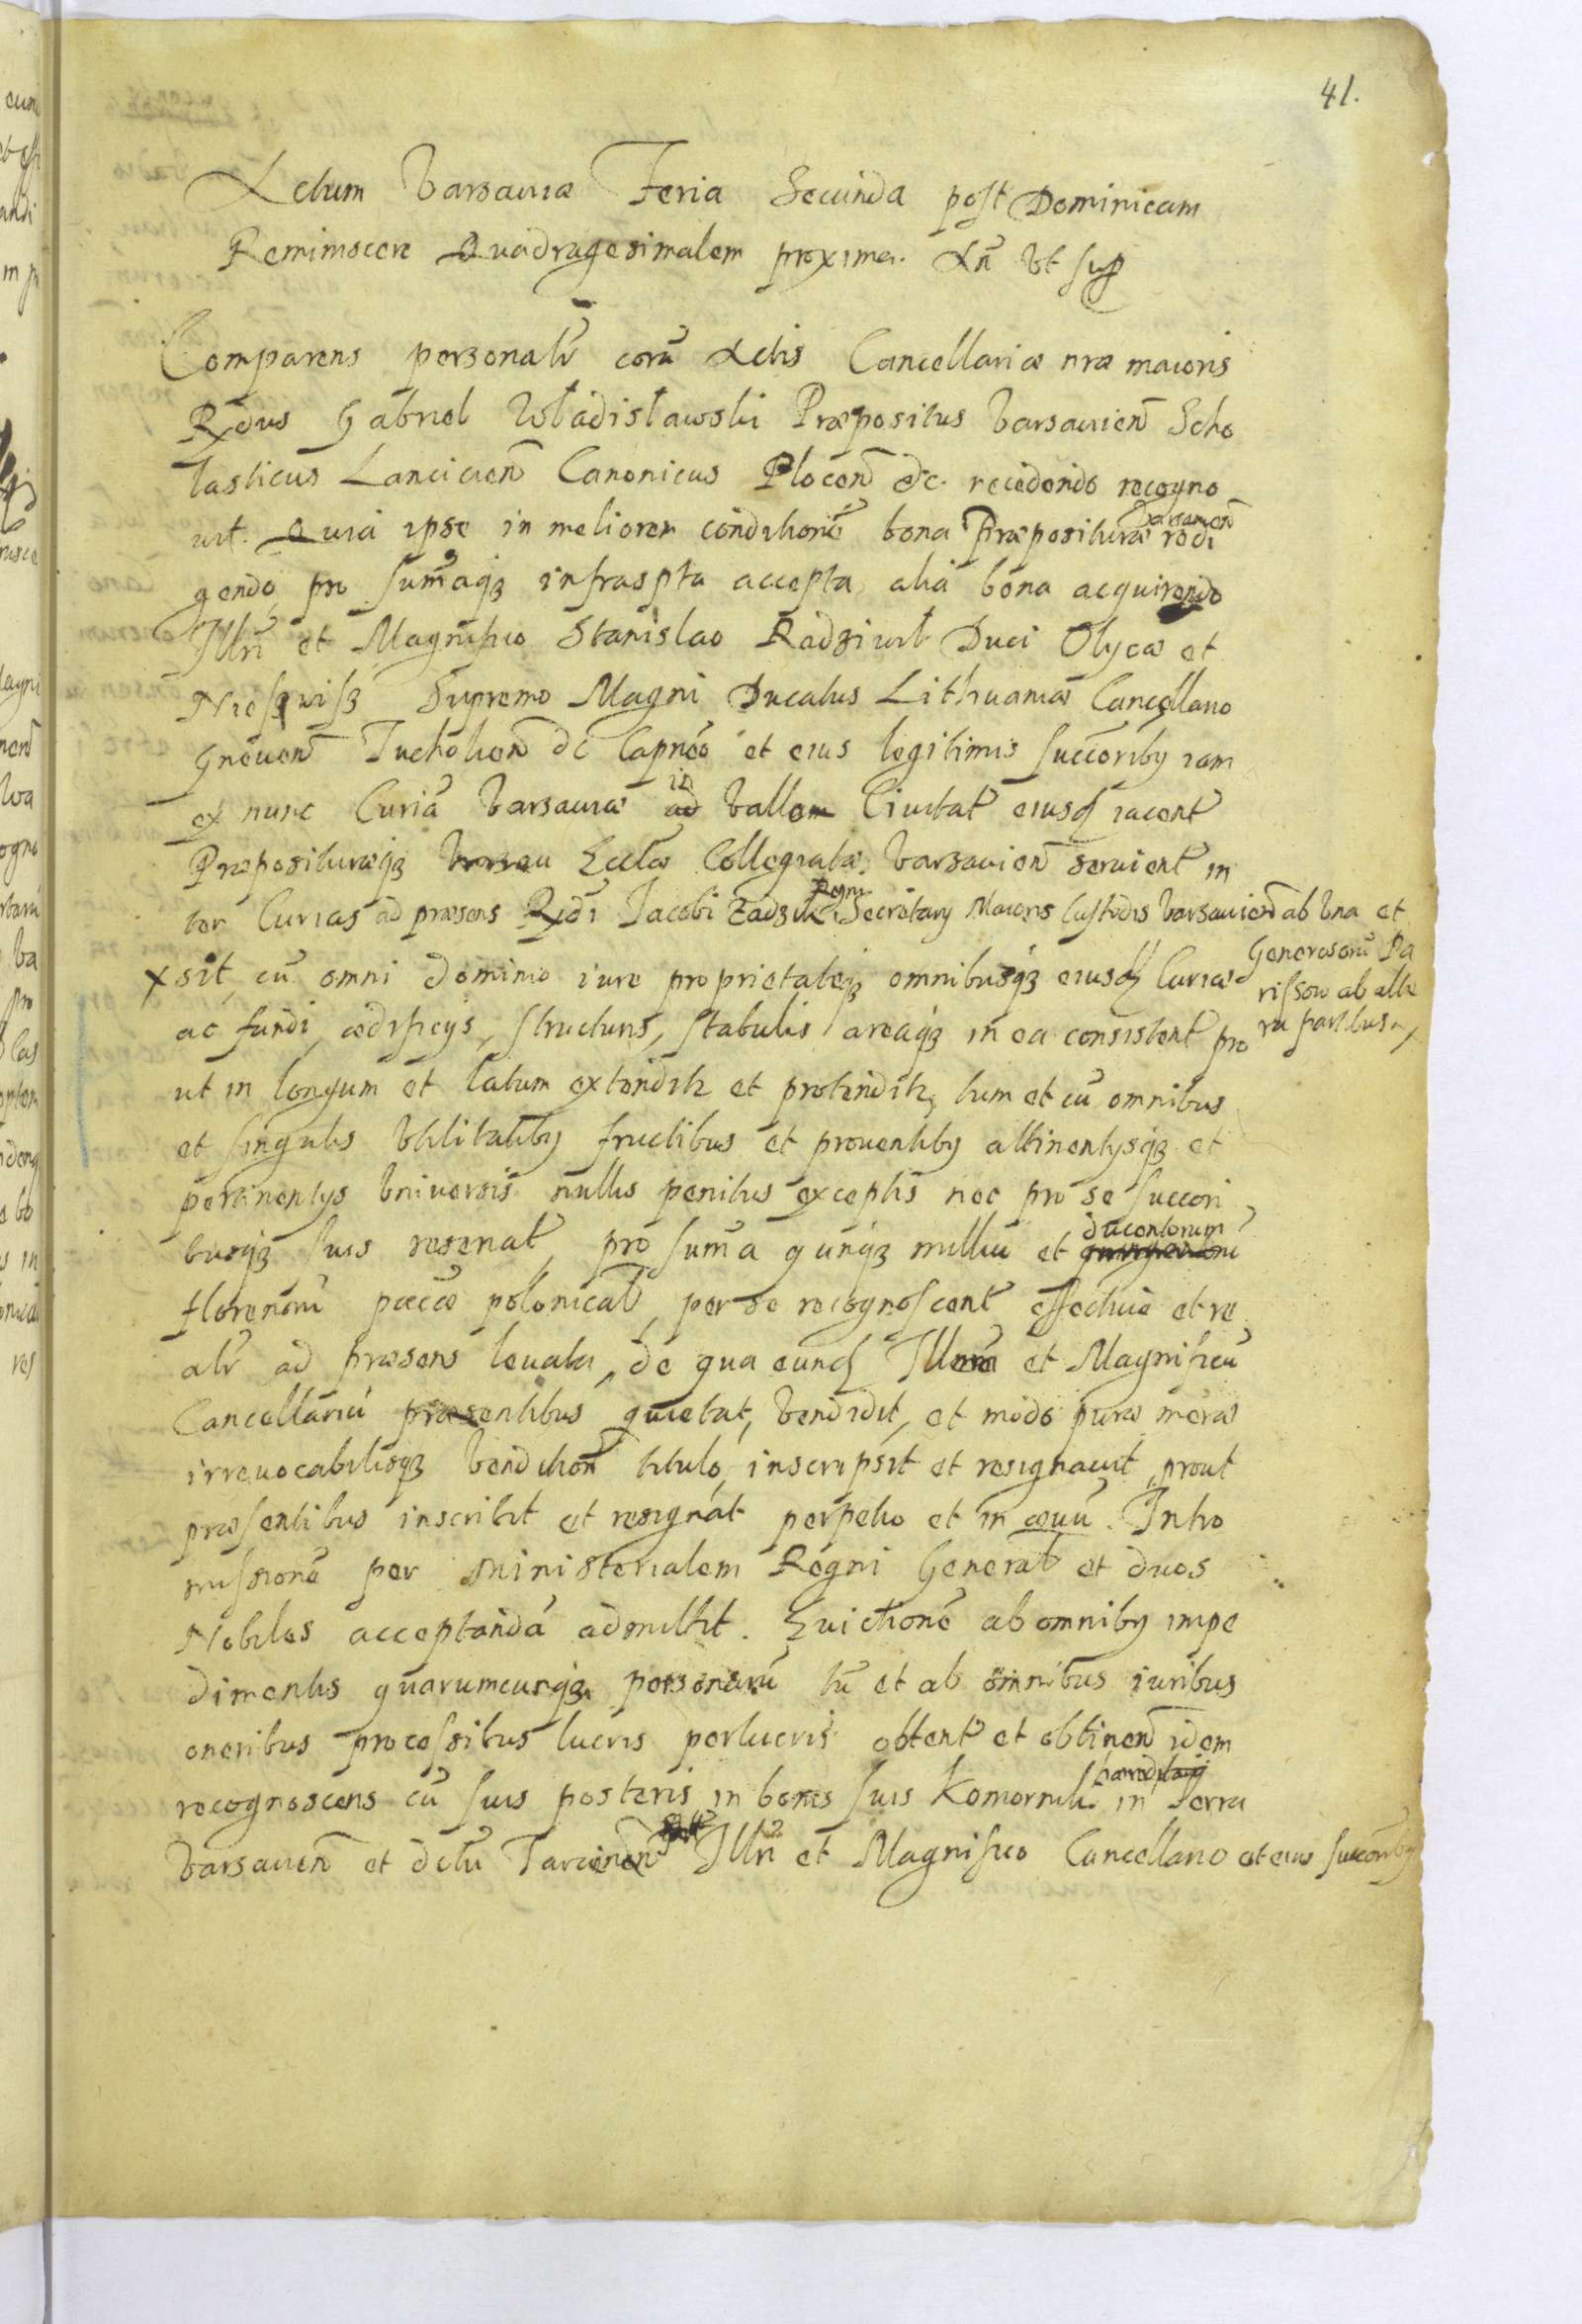 41.
Actum Varsaviæ Feria Secunda post Dominicam
Reminiscere Quadragesimalem proxima. Añ Vt sup
Comparens personalr̃ corã Actis Cancellariæ nr̃æ maioris
Rñdus Gabriel Władisławski Præpositus Varsavien̄ Scho
lasticus Lancicien̄ Canonicus Plocen̄ etc. recedendo recogno
vit. Quia ipse in meliorem conditionē bona Præposituræ Varsavien̄ redi
gendo, pro sum̄aqȝ infrasp̃ta accepta, alia bona acquirendo
Illr̃i et Magnifico Stanislao Radziwił Duci Olycæ et
Nieswisz Supremo Magni Ducatus Lithuaniæ Cancellario
Gneven̄ Tucholien̄ etc Capn̄eo et eius legitimis succorib9 iam
ex nunc Curiā Varsaviæ ad in Vallem Civitat̃ eiusd̃ iacent̃
Præposituræqȝ Eccl̃æ Collegiatæ Varsavien̄ servient̃ in
ter Curias ad præsens Rñdi Jacobi Zadzik Regni Secretarÿ Maioris Custodis Varsavien̄ ab Vna et
Generosorū Pa
rissow ab alte
ra partibus
x sit, cū omni dominio iure proprietateqȝ omnibusqȝ eiusd̃ Curiæ
ac fundi, ædificÿs, structuris, stabulis areaqȝ in ea consistent̃ pro
ut in longum et latum extendit̃ et protendit̃, tum et cū omnibus
et singulis Vtilitatib9 fructibus et proventib9 attinentÿsqȝ et
pertinentÿs Vniversis nullis penitus exceptis nec pro se succori
busqȝ suis reservat̃, pro sum̄a quinqȝ milliū et ducentorum
florenorū pecc̃æ polonical̃, per se recognoscent̃ effective et re
alr̃ ad præsens levata, de qua eund̃ Illrem̃ et Magnificū
Cancellariū præsentibus quietat, Vendidit, et modo puræ meræ
irrevocabilisqȝ Vendition̄ titulo, inscripsit et resignavit, prout
præsentibus inscribit et resignat perpetuo et in ævū. Intro
missionē per Ministerialem Regni General̃ et duos
Nobiles acceptandā admittit. Evictionē ab omnib9 impe
dimentis quarumcunqȝ personarū tū et ab omnibus iuribus
oneribus processibus lucris perlucris obtent̃ et obtinen̄ idem
recognoscens cū suis posteris in bonis suis Komorniki in Terra
Varsavien̄ et dctū Illr̃i et Magnifico Cancellario et eius succorib9